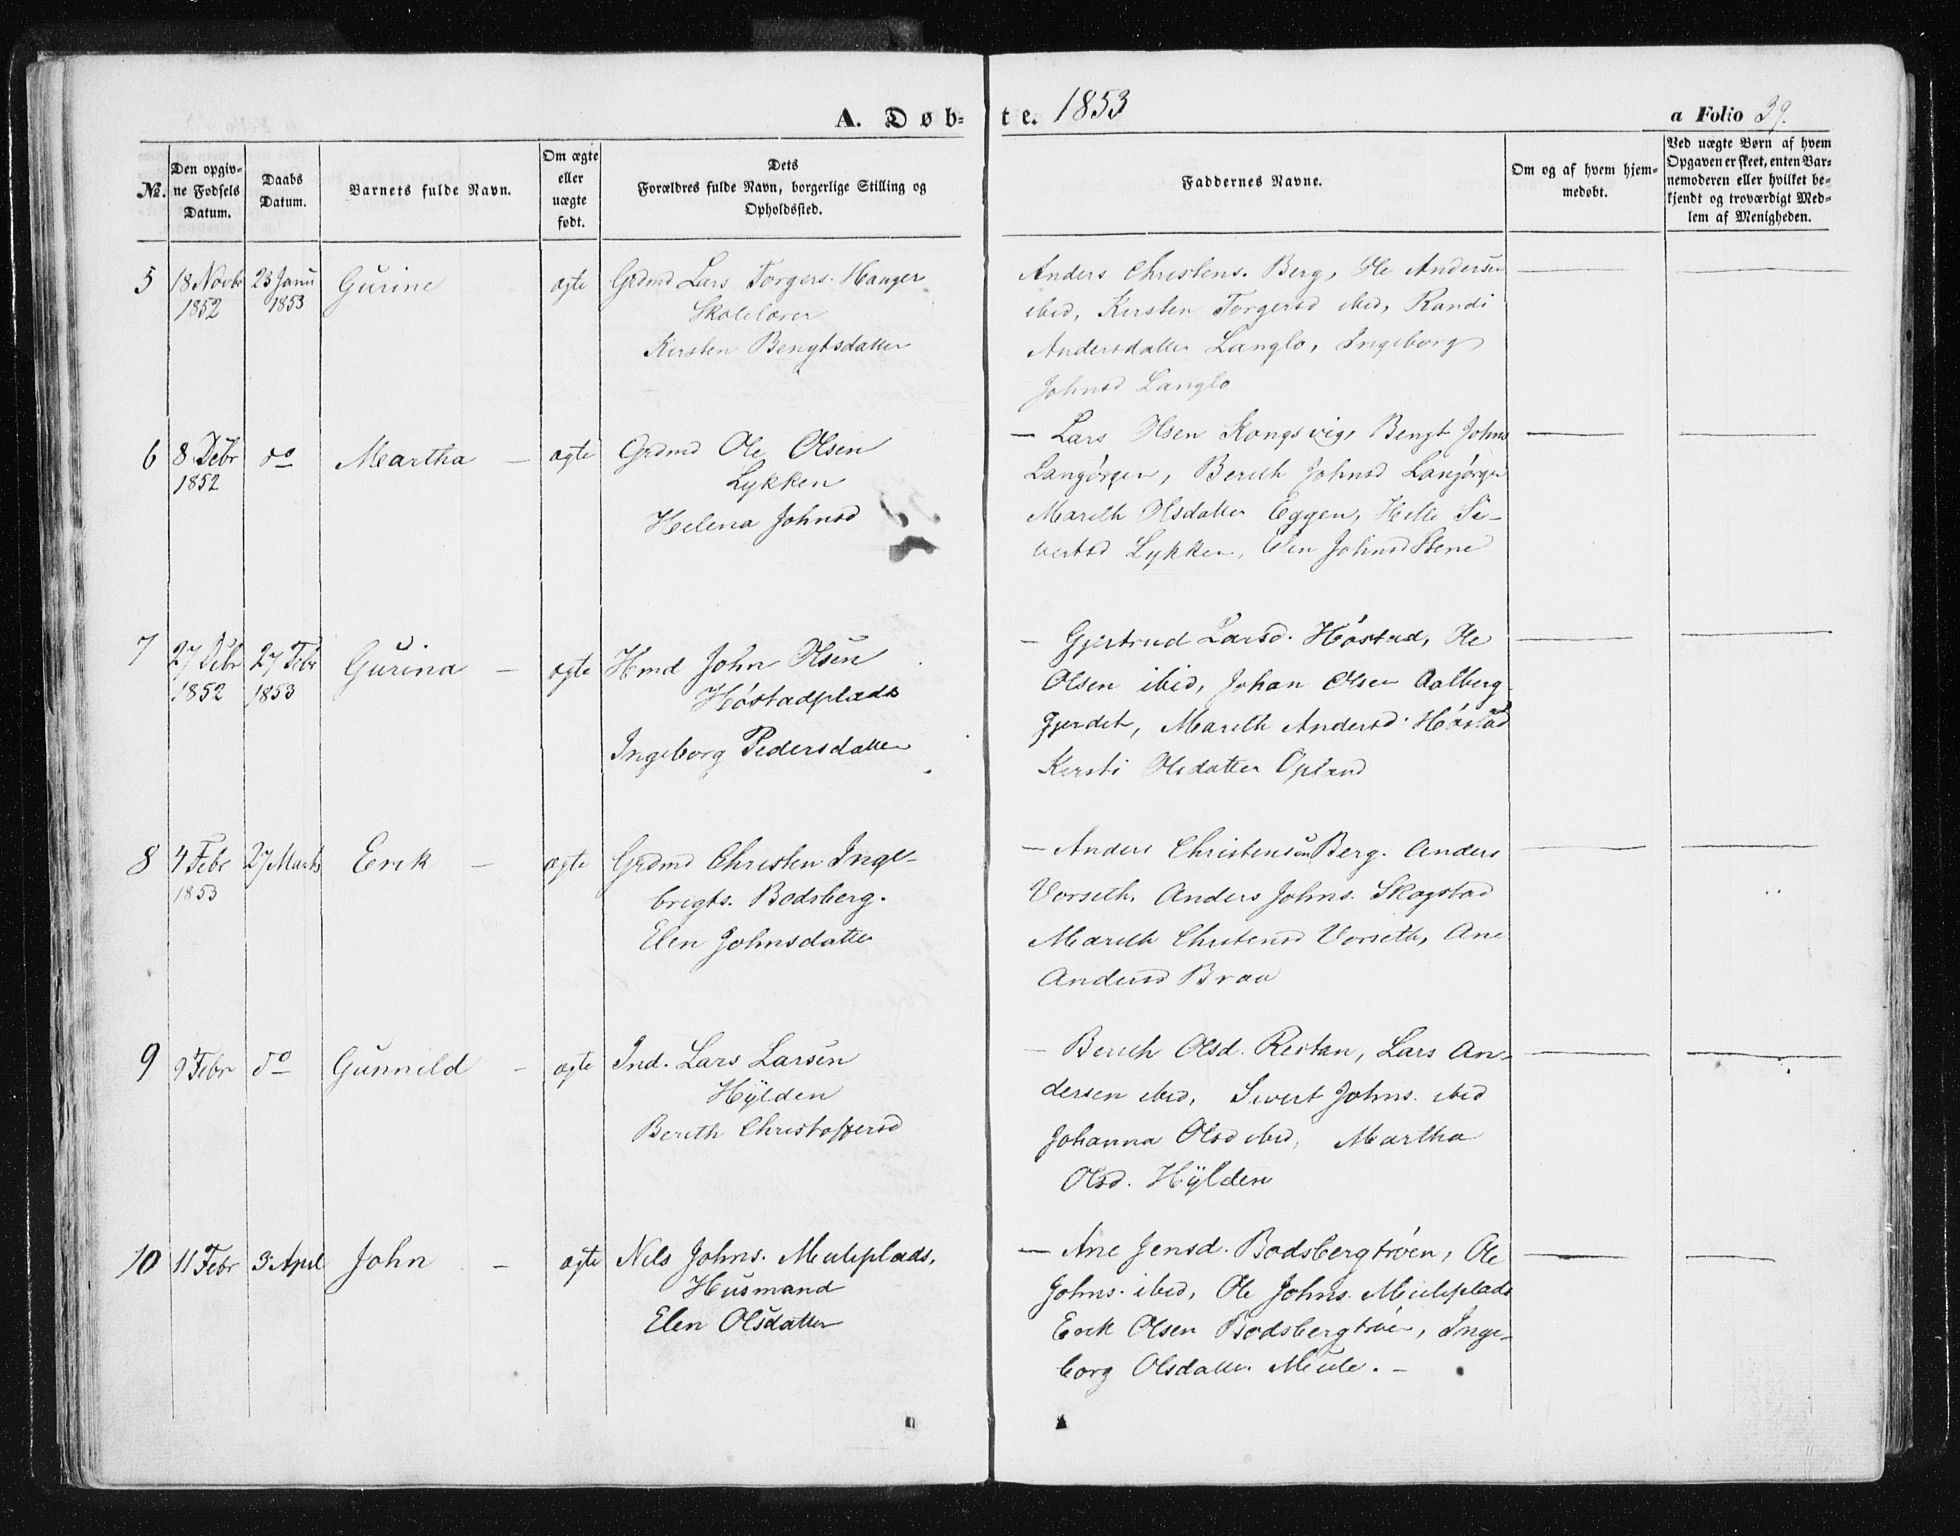 A. Døb- te. 1853
a Folio 39.
№.
Den opgiv-
ne Fødsels
Datum.
Daabs
Datum.
Varnets fulde Navn.
Om ægte
eller
uægte
født.
Dets
Forældres fulde Navn, borgerlige Stilling og
Opholdssted.
Faddernes Navne.
Om og af hvem hjem-
medøbt.
Ved uægte Børn af hvem
Opgaven er skeet, enten Bar-
nemoderen eller hvilket be-
kjendt og troværdigt Med-
lem af Menigheden.
5
18 Novbr
1852
23 Janu
1853
Gurine
ægte
Grdmd Lars Torgers. Hanger
Skolelærer
Kirsten Bengtsdatter
Anders Christens. Berg, Ole Andersen
ibid, Kirsten Torgersd ibid, Randi
Andersdatter Langlo, Ingeborg
Johnsd Langlo
6
8 Debr
1852
do
Martha
ægte
Grdmd Ole Olsen
Lykken
Helena Johnsd
— Lars Olsen Kongsvig, Bengt Johns
Langørgen, Berith Johnsd Langørgen
Marith Olsdatter Eggen, Si-
vertsd Lykken, Elen Johnsd Stene
7
27 Debr
1852
27 Febr
1853
Gurina
ægte
Hmd John Olsen
Høstadplads
Ingeborg Pedersdatter
— Gjertrud Larsd. Høstad, Ole
Olsen ibid, Johan Olsen Aalberg-
gjerdet, Marith Andersd. Høstad
Kersti Olsdatter Opland
8
4 Febr
1853
27 Marts
Erik
ægte
Grdmd Christen Inge-
brigts. Bodsberg.
Elen Johnsdatter
— Anders Christensen Berg. Anders
Vorseth, Anders Johns. Skogstad
Marith Christensd Vorseth, Ane
Andersd Braa
9
9 Febr
do
Gunnild
ægte
Ind. Lars Larsen
Hÿlden
Berith Christoffersd
— Berith Olsd. Restan, Lars An-
dersen ibid, Sivert Johns. ibid
Johanna Olsd ibid, Martha
Olsd. Hÿlden
10
11 Febr
3 April
John
ægte
Nils Johns. Muleplads,
Husmand
Elen Olsdatter
— Ane Jensd. Bodsbergtrøen, Ole
Johns. ibid, Ole Johns. Muleplads
Erik Olsen Bodsbergtrøen, Inge-
borg Olsdatter Mule. —